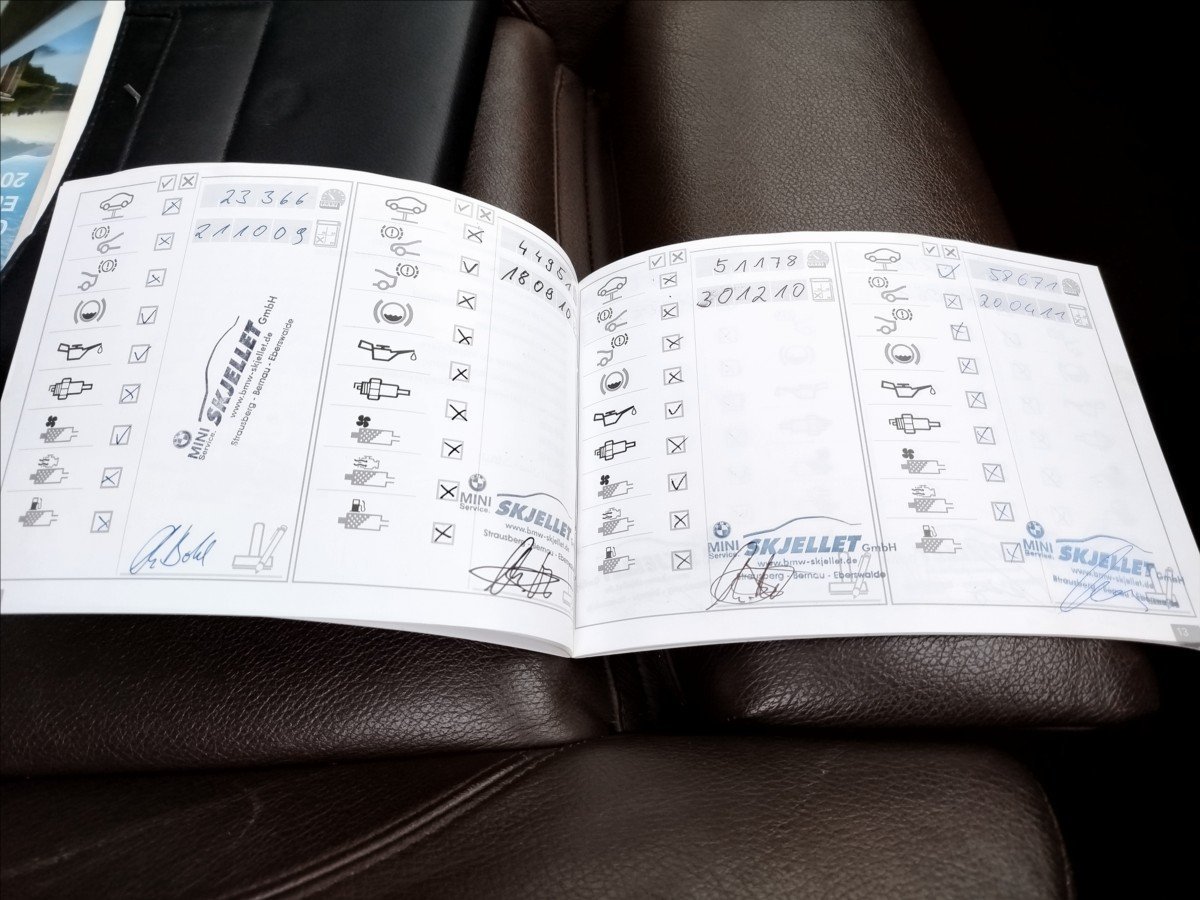 23366
211009
MINI SKJELLET GmbH
Service.
www.bmw-skjellet.de
Strausberg - Bernau - Eberswalde
4495
180910
MINI SKJELLET
Service.
www.bmw-skjellet.de
51178
301210
MINI SKJELLET GmbH
Service.
www.bmw-skjellet.de
Strausberg - Bernau - Eberswalde
58671
200411
MINI SKJELLET GmbH
Service.
www.bmw-skjellet.de
Strausberg - Bernau - Eberswalde
13